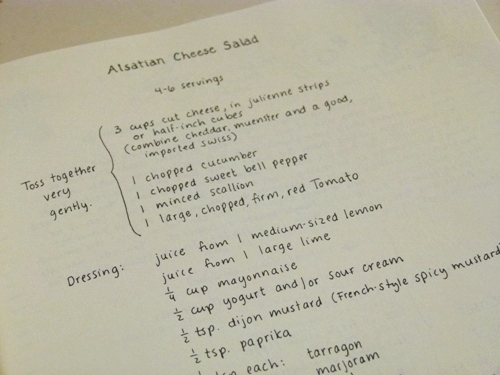 Alsatian Cheese Salad
4-6 servings
Toss together
very
gently.
3 cups cut cheese, in julienne strips
or half-inch cubes
(combine cheddar, muenster and a good,
imported swiss)
1 chopped cucumber
1 chopped sweet bell pepper
1 minced scallion
1 large, chopped, firm, red Tomato
Dressing:
juice from 1 medium-sized lemon
juice from 1 large lime
1/4 cup mayonnaise
1/2 cup yogurt and/or sour cream
1/2 tsp. dijon mustard (French-style spicy mustard
1/2 tsp. paprika
each: tarragon
marjoram